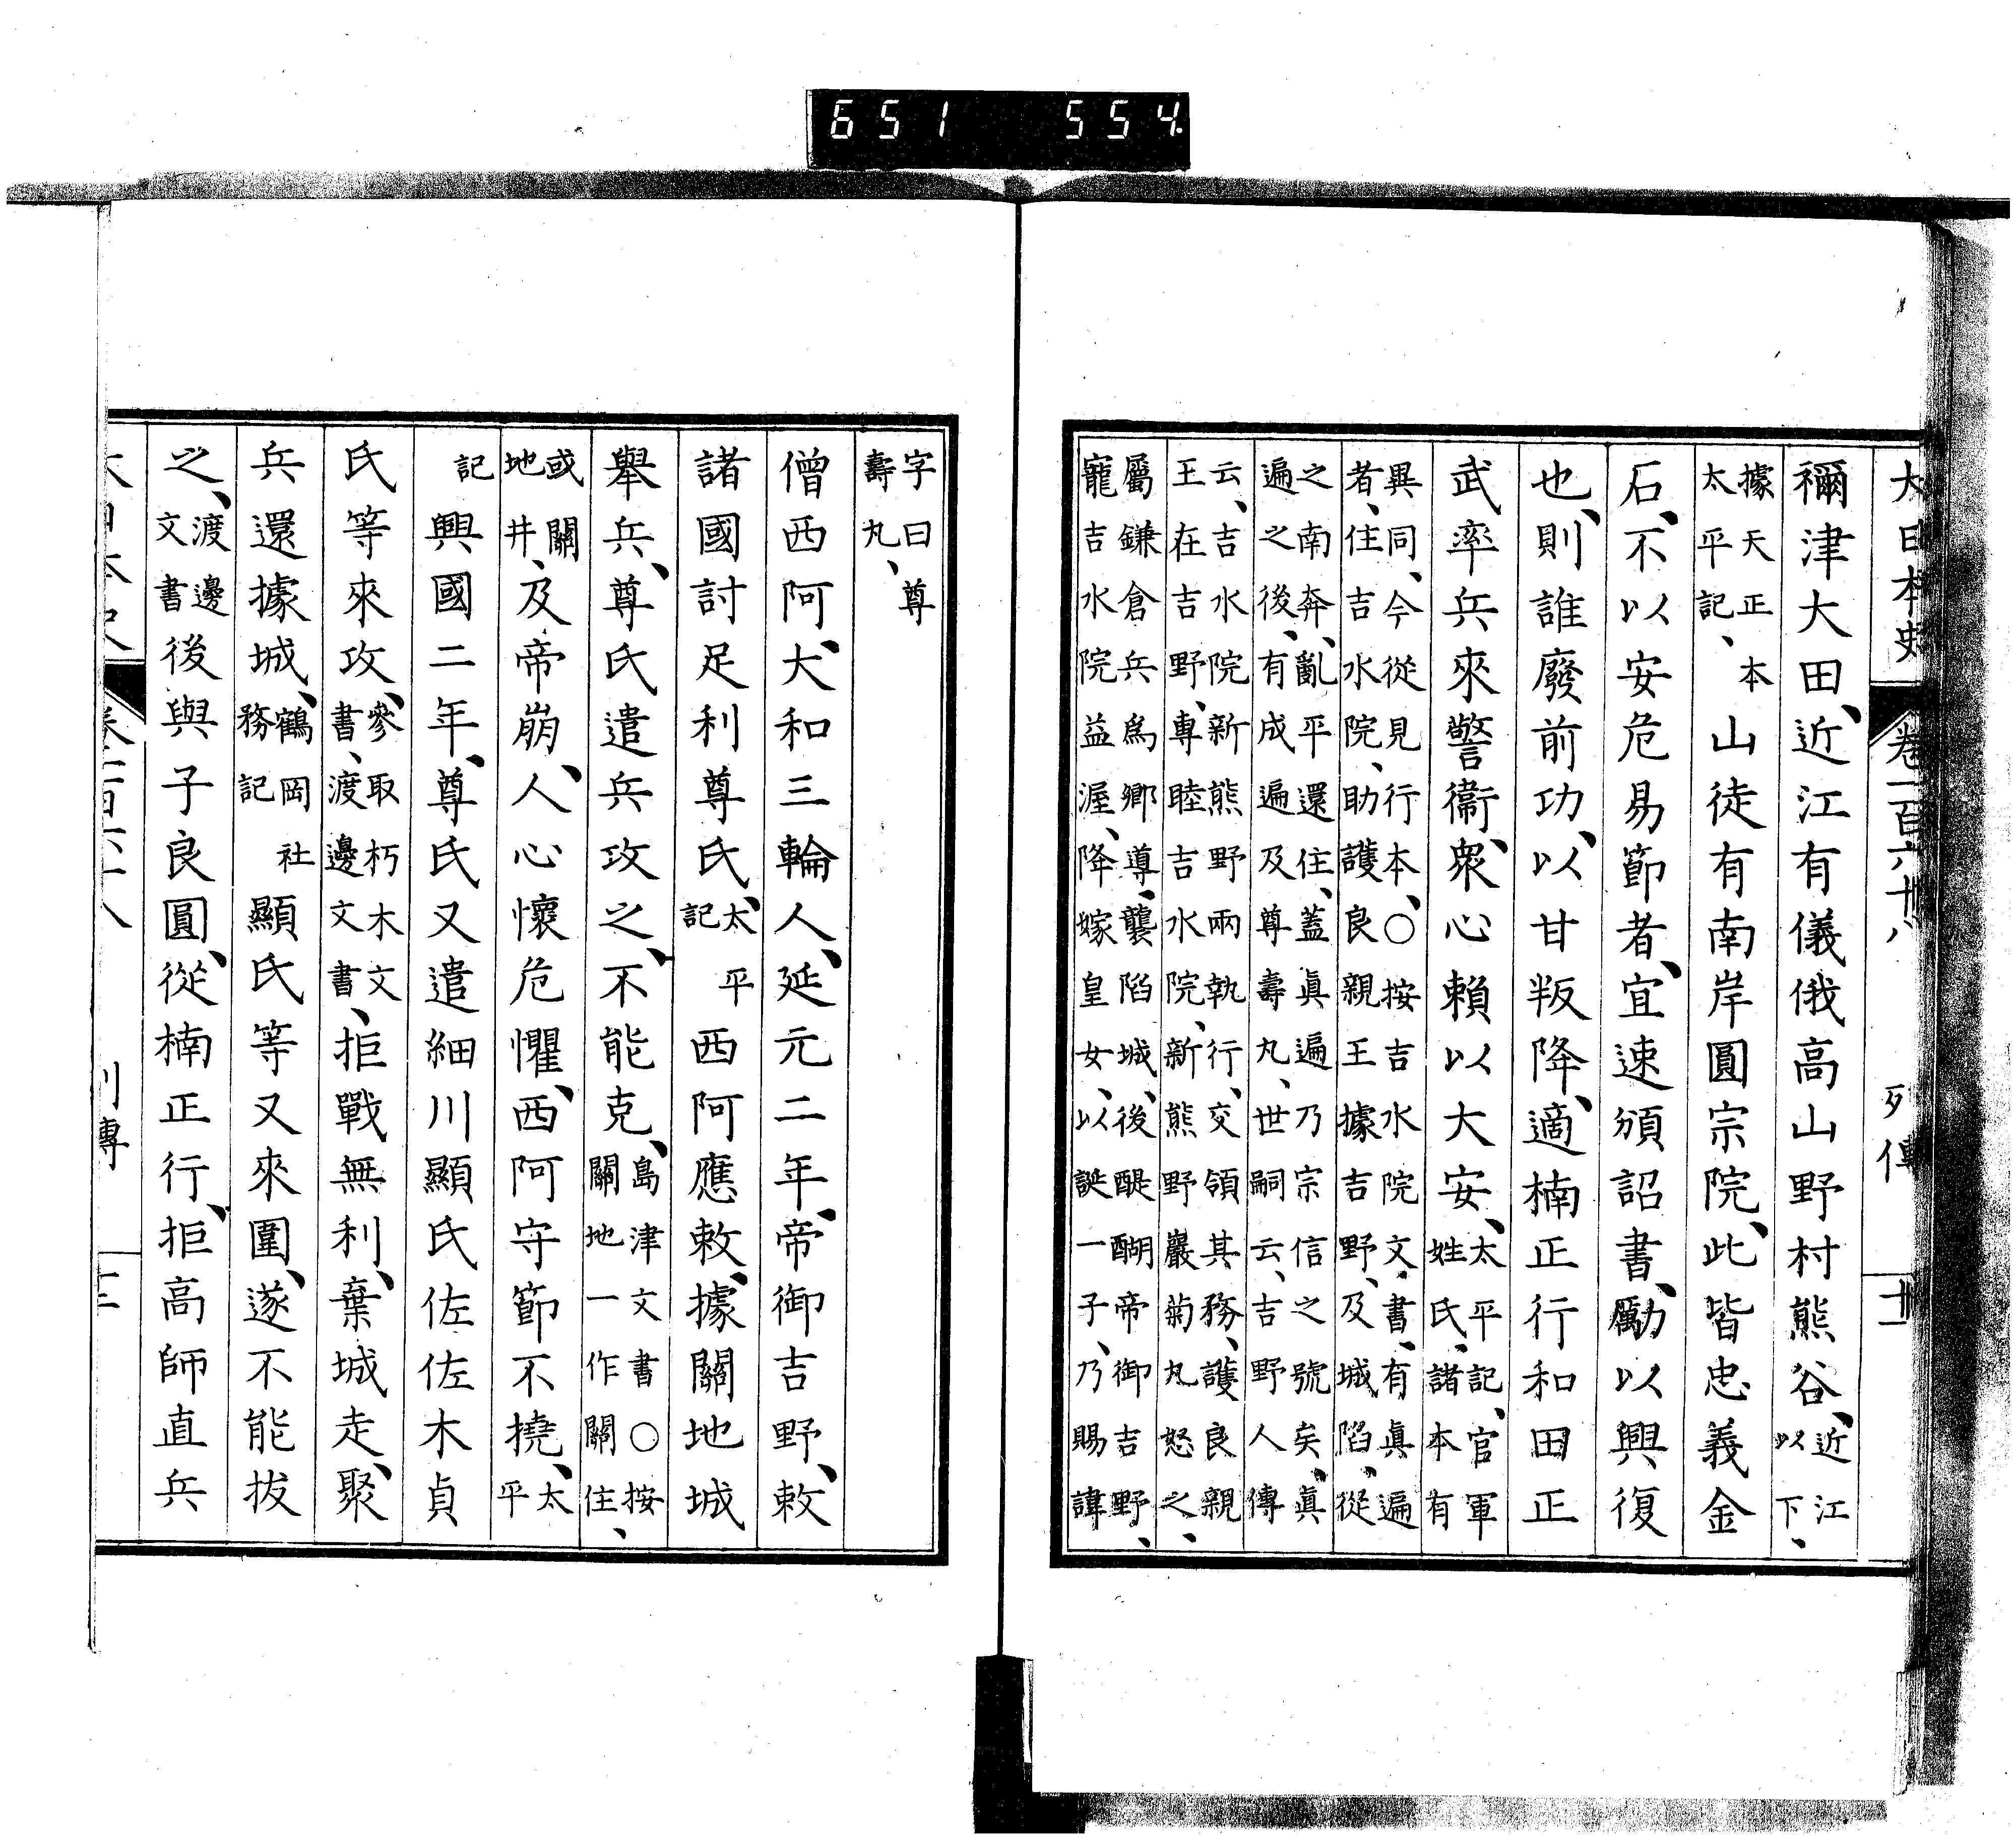 大日本史 卷一百六十八 列傳 十一
禰津大田、近江有儀俄高山野村熊谷、近江以下、
據天正本太平記、山徒有南岸圓宗院、此皆忠義金
石、不以安危易節者、宜速頒詔書、勵以興復
也、則誰廢前功、以甘叛降、適楠正行和田正
武率兵來警衞、衆心賴以大安、太平記、官軍姓氏、諸本有
異同、今從見行本、○按吉水院文書、有眞遍
者、住吉水院、助護良親王據吉野、及城陷、從
之南奔、亂平還住、蓋眞遍乃宗信之號矣、眞
遍之後、有成遍及尊壽丸、世嗣云、吉野人傳
云、吉水院新熊野兩執行、交領其務、護良親
王在吉野、專睦吉水院、新熊野巖菊丸怒之、
屬鎌倉兵爲鄉導、襲陷城、後醍醐帝御吉野、
寵吉水院益渥、降嫁皇女、以誕一子、乃賜諱
字曰尊
壽丸、
僧西阿、大和三輪人、延元二年、帝御吉野、敕
諸國討足利尊氏、太平記西阿應敕、據關地城
舉兵、尊氏遣兵攻之、不能克、島津文書○按關地一作關住、
或關地井、及帝崩、人心懷危懼、西阿守節不撓、太平
記興國二年、尊氏又遣細川顯氏佐佐木貞
氏等來攻、參取朽木文書、渡邊文書、拒戰無利、棄城走、聚
兵還據城、鶴岡社務記顯氏等又來圍、遂不能拔
之、渡邊文書後與子良圓、從楠正行、拒高師直兵